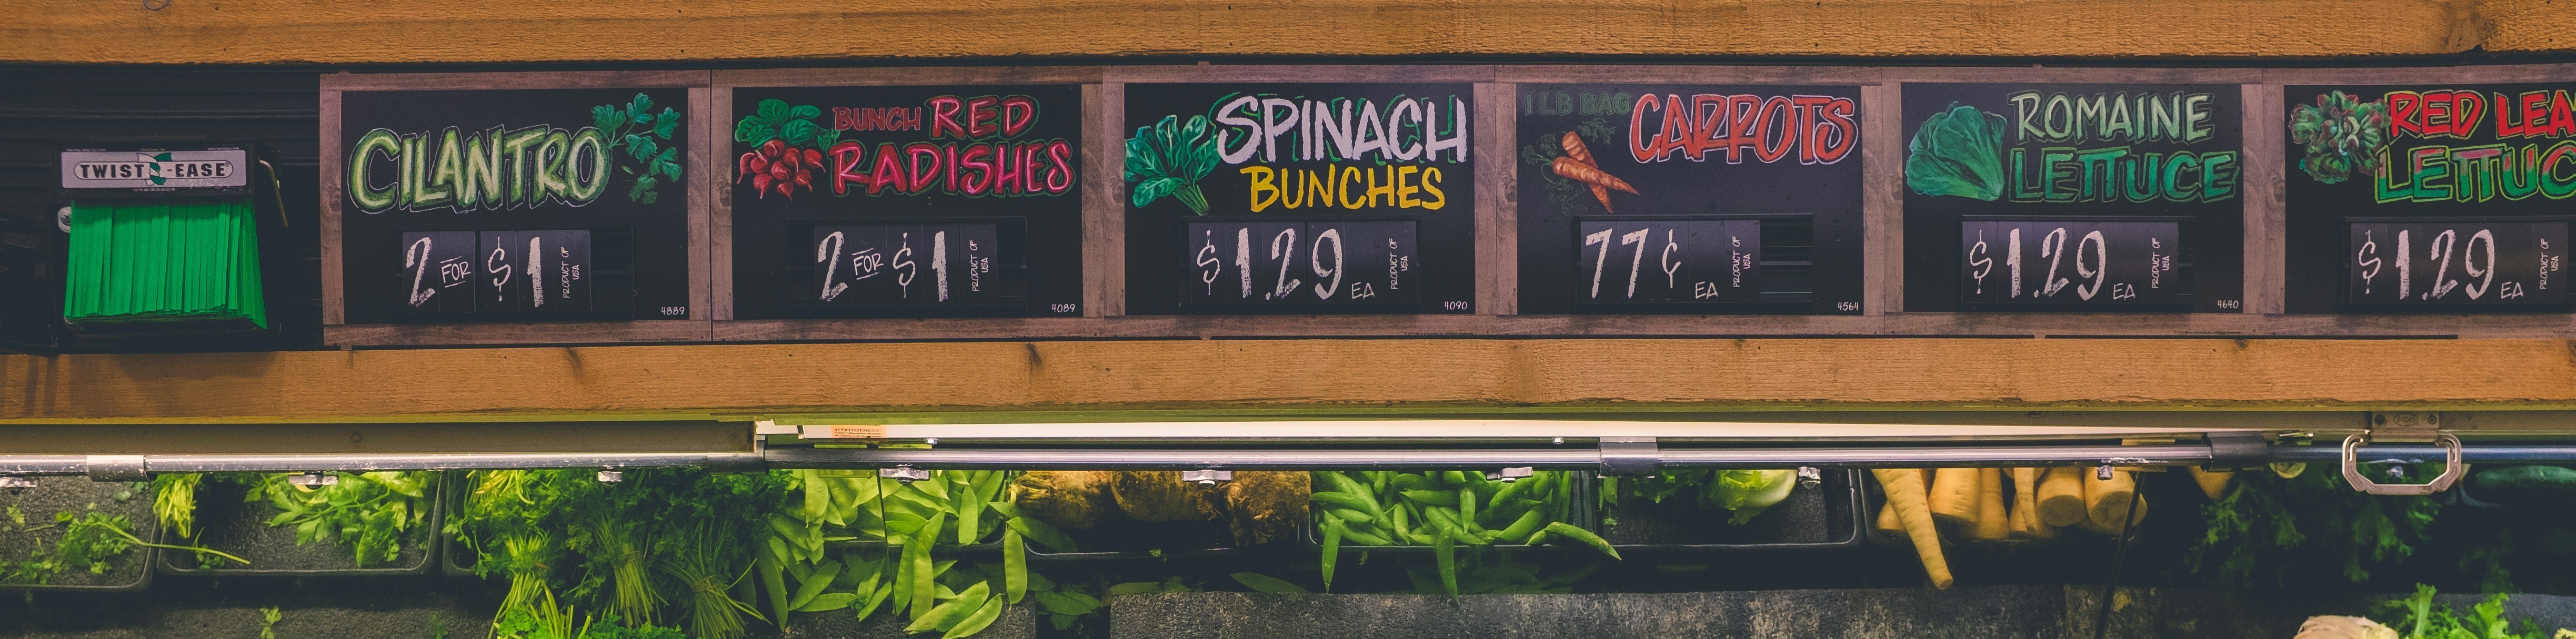 TWIST-EASE
CILANTRO
2 FOR $1
PRODUCT OF
USA
4889
BUNCH RED
RADISHES
2 FOR $1
PRODUCT OF
USA
4089
SPINACH
BUNCHES
$1.29 EA
PRODUCT OF
USA
4090
1 LB BAG CARROTS
77¢ EA
PRODUCT OF
USA
4564
ROMAINE
LETTUCE
$1.29 EA
PRODUCT OF
USA
4640
RED LEA
LETTUC
$1.29 EA
PRODUCT OF
USA